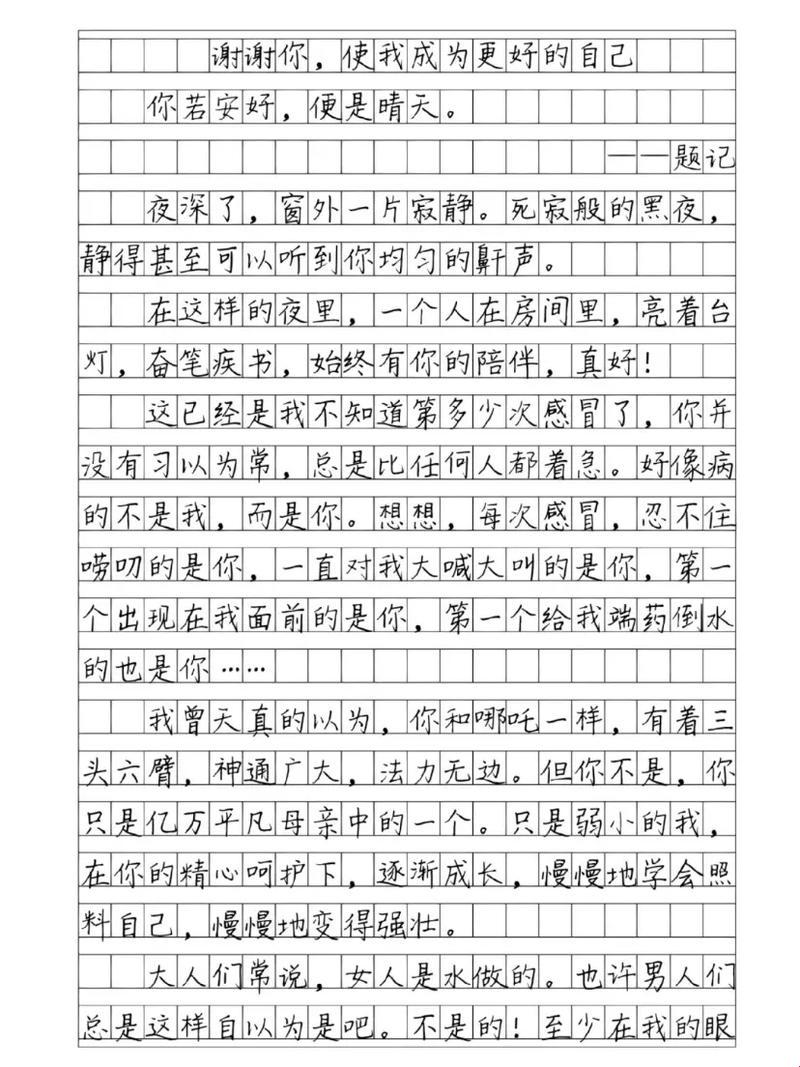 谢谢你，使我成为更好的自己
你若安好，便是晴天。
——题记
夜深了，窗外一片寂静。死寂般的黑夜，
静得甚至可以听到你均匀的鼾声。
在这样的夜里，一个人在房间里，亮着台
灯，奋笔疾书，始终有你的陪伴，真好！
这已经是我不知道第多少次感冒了，你并
没有习以为常，总是比任何人都着急。好像病
的不是我，而是你。想想，每次感冒，忍不住
唠叨的是你，一直对我大喊大叫的是你，第一
个出现在我面前的是你，第一个给我端药倒水
的也是你……
我曾天真的以为，你和哪吒一样，有着三
头六臂，神通广大，法力无边。但你不是，你
只是亿万平凡母亲中的一个。只是弱小的我，
在你的精心呵护下，逐渐成长，慢慢地学会照
料自己，慢慢地变得强壮。
大人们常说，女人是水做的。也许男人们
总是这样自以为是吧。不是的！至少在我的眼